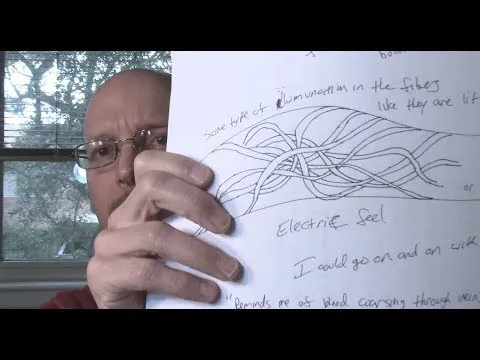 Some type of illumunation in the fibers
like they are lit
or
Electric feel
I could go on and on with
"Reminds me of blood coarsing through vein